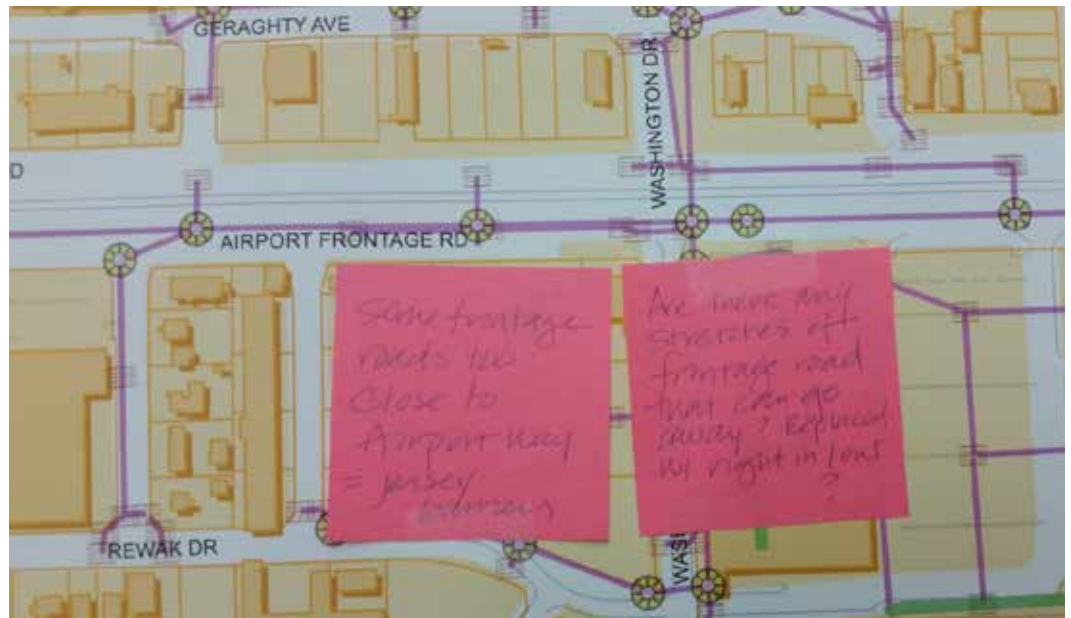 GERAGHTY AVE
WASHINGTON DR
D
AIRPORT FRONTAGE RD
Some frontage
roads too
close to
Airport Way
= jersey
barriers
Are there any
stretches of
frontage road
that can go
away? Replaced
w/ right in/out
?
REWAK DR
WAS